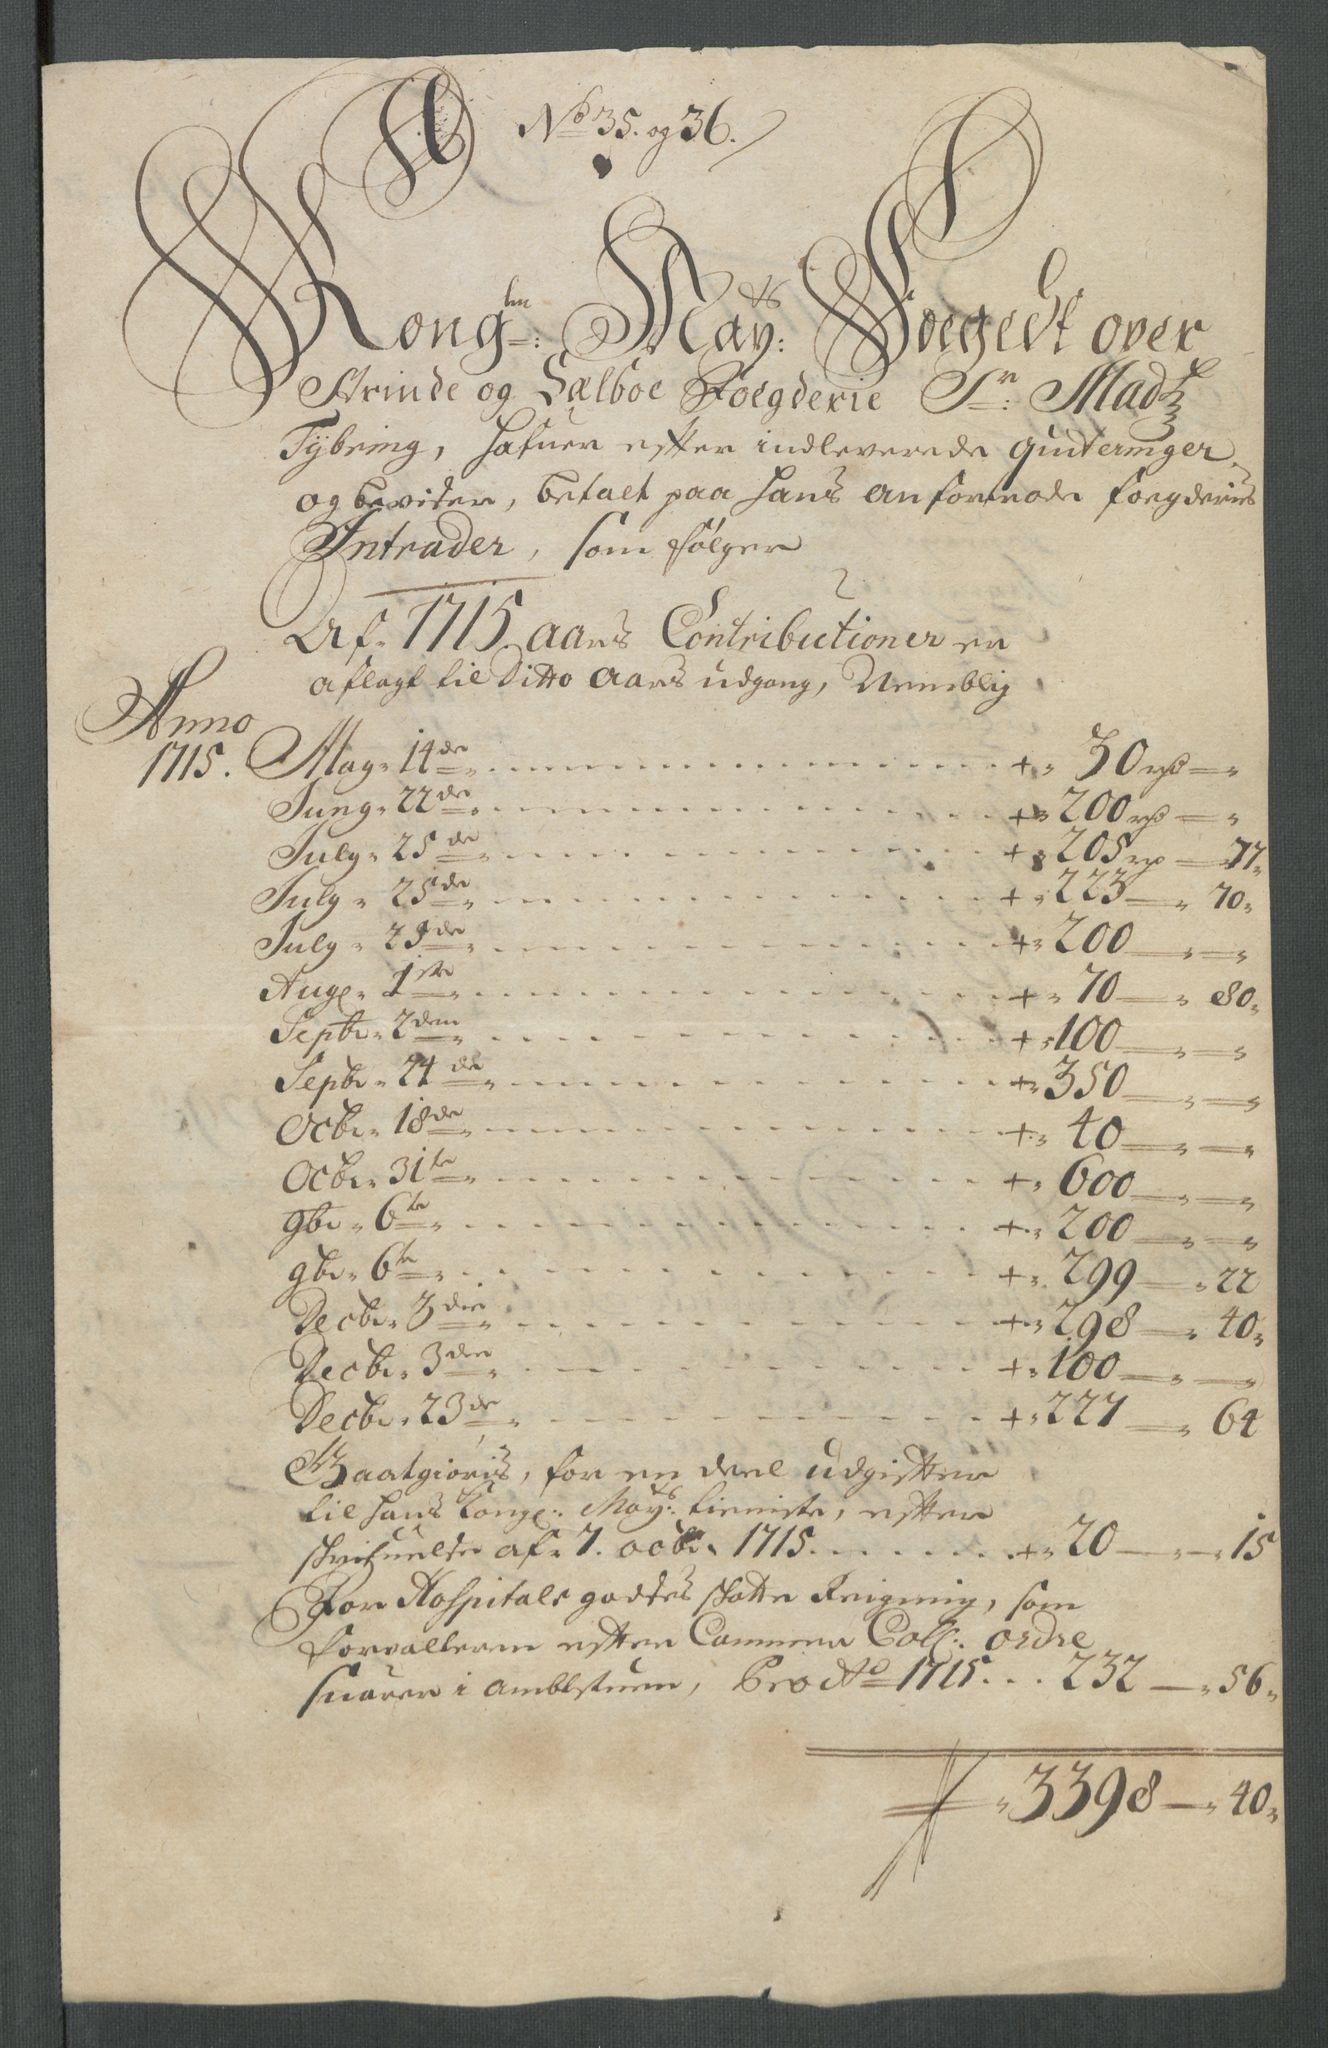 No 35. og 36.
Konglm: Mayts: Foegedt over
Strinde og Sælboe Foegderie Sr: Madtz
Tybring, hafuer efter indleverede quiteringer
og beviser, betalt paa hans anfortrode foegderies
Intrader, som følger
Af 1715 aars Contributioner er
aflagt til Ditto aars udgang, Nemblig
Anno
1715. May 14de + 30 rd
Juny 22de + 200 rd
July 25de + 205 rd 77
July 25de + 223 70
July 29de + 200
Aug 1ste + 70 80
Septbr 2den + 100
Septbr 24de + 350
Octbr 18de + 40
Octbr 31te + 600
9br 6te + 200
9br 6te + 299 22
Decbr 3die + 298 40
Decbr 3die + 100
Decbr 23de + 227 64
Gaatgiøris, for en deel udgifter
til hans Kongl: Mayts: tieniste, efter
skrifuelse af 7. octbr 1715 + 20 15
For Hospitals godses skatte Reigning, som
forvalteren efter Cammer Coll: ordre
suarer i ambtstuen, Pro Ao 1715. 232 56
3398 40